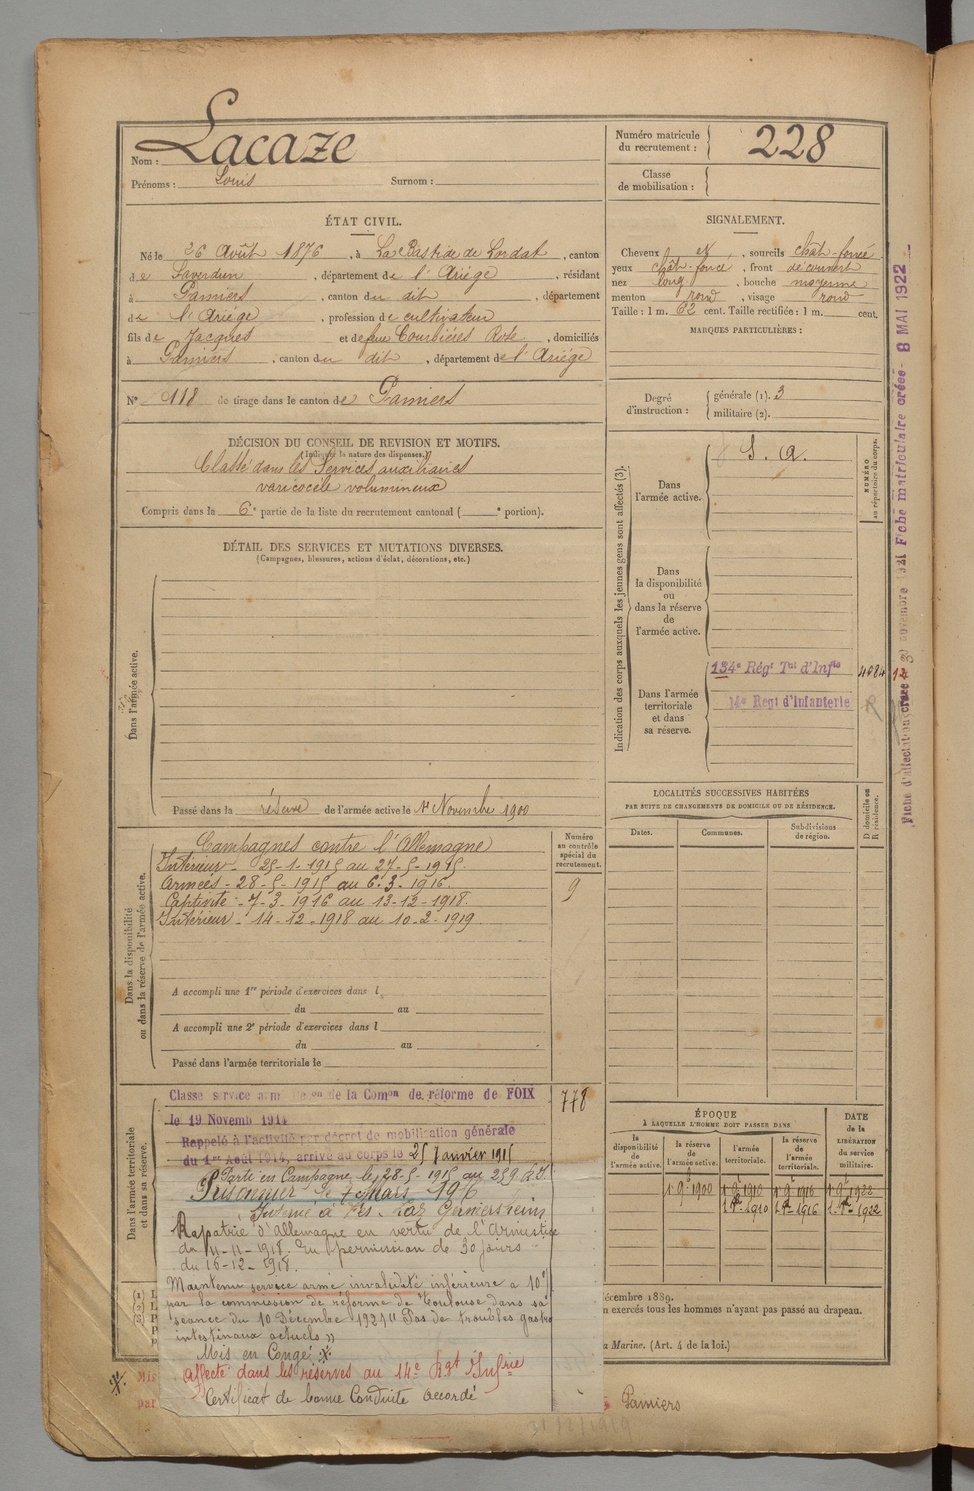 Nom : Lacaze
Prénoms : Louis Surnom :
Numéro matricule
du recrutement : 228
Classe
de mobilisation :
ÉTAT CIVIL.
Né le 26 Août 1876, à La Bastide de Lordat, canton
de Saverdun, département de l'Ariège, résidant
à Pamiers, canton du dit, département
de l'Ariège, profession de cultivateur
fils de Jacques et de feue Courbières Rose, domiciliés
à Pamiers, canton du dit, département de l'Ariège
N° 118 de tirage dans le canton de Pamiers
SIGNALEMENT.
Cheveux et, sourcils chât-foncé
yeux chât-foncé, front découvert
nez long, bouche moyenne
menton rond, visage rond
Taille : 1 m. 62 cent. Taille rectifiée : 1 m. cent.
MARQUES PARTICULIÈRES :
Degré
d'instruction :
générale (1). 3
militaire (2).
DÉCISION DU CONSEIL DE REVISION ET MOTIFS.
(Indiquer la nature des dispenses.)
Classé dans les Services auxiliaires
varicocèle volumineux
Compris dans la 6e partie de la liste du recrutement cantonal ( e portion).
DÉTAIL DES SERVICES ET MUTATIONS DIVERSES.
(Campagnes, blessures, actions d'éclat, décorations, etc.)
Dans l'armée active.
Passé dans la réserve de l'armée active le 1er Novembre 1900
Indication des corps auxquels les jeunes gens sont affectés (3).
Dans
l'armée active.
S. A.
NUMÉRO
au répertoire du corps.
Dans
la disponibilité
ou
dans la réserve
de
l'armée active.
Dans l'armée
territoriale
et dans
sa réserve.
134e Régt Tal d'Infie
4084
14e Regt d'Infanterie
R
Fiche matriculaire créée - 8 MAI 1922
Fiche d'affectation créée
LOCALITÉS SUCCESSIVES HABITÉES
PAR SUITE DE CHANGEMENTS DE DOMICILE OU DE RÉSIDENCE.
Dates.
Communes.
Subdivisions
de région.
D domicile ou
R résidence.
Dans la disponibilité
ou dans la réserve de l'armée active.
Numéro
au contrôle
spécial du
recrutement.
9
Campagnes contre l'Allemagne
Intérieur - 25-1-1915 au 27-5-1915.
Armées - 28-5-1915 au 6.3.1916.
Captivité - 7-3-1916 au 13-12-1918.
Intérieur - 14-12-1918 au 10-2-1919.
A accompli une 1re période d'exercices dans l
du au
A accompli une 2e période d'exercices dans l
du au
Passé dans l'armée territoriale le
Dans l'armée territoriale
et dans sa réserve.
778
Classé service armé de la Comon de réforme de FOIX
le 19 Novemb 1914
Rappelé à l'activité par décret de mobilisation générale
du 1er Août 1914, arrivé au corps le 25 Janvier 1915
Parti en Campagne le 28-5-1915 au 259 R.I.
Prisonnier le 7 Mars 1916
Interné à Germersheim
Rapatrié d'Allemagne en vertu de l'Armistice
du 11-11-1918. En permission de 30 jours
du 16-12-1918.
Maintenu service armé invalidité inférieure à 10%
par la commission de réforme de Toulouse dans sa
séance du 10 Décembre 1924 "Pas de troubles gastro
intestinaux actuels"
Mis en Congé
Affecté dans les réserves au 14e Rgt Infrie
Certificat de bonne Conduite accordé
ÉPOQUE
À LAQUELLE L'HOMME DOIT PASSER DANS
la
disponibilité
de
l'armée active.
la réserve
de
l'armée active.
l'armée
territoriale.
la réserve
de
l'armée
territoriale.
DATE
de la
LIBÉRATION
du service
militaire.
1-9-1900 1-9-1910 1-9-1916 1-9-1922
1-8re-1910 1-8re-1916 1-8re-1922
écembre 1889.
n exercés tous les hommes n'ayant pas passé au drapeau.
a Marine. (Art. 4 de la loi.)
Mis
par
Pamiers